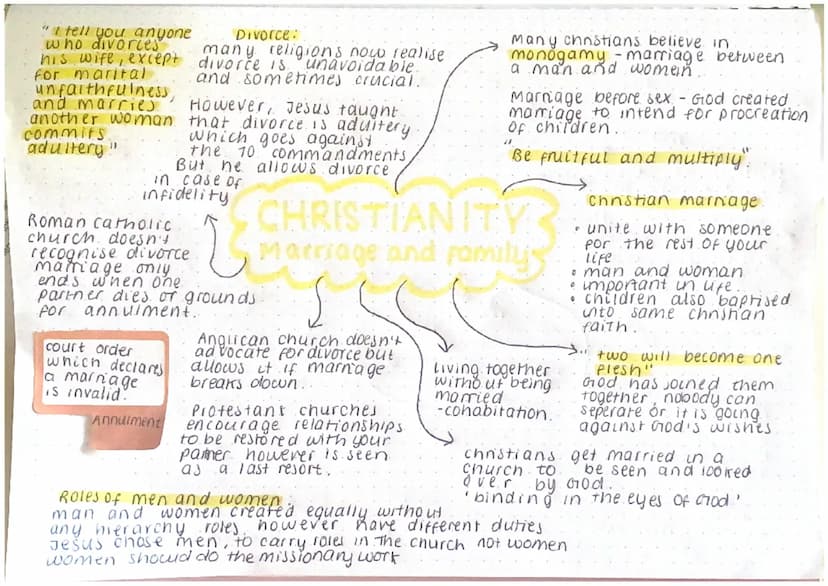 "I tell you anyone
who divorces
his wife, except
for marital
unfaithfulness,
and marries
another woman
commits
adultery"
Divorce:
many religions now realise
divorce is unavoidable
and sometimes crucial.
However, Jesus taught
that divorce is adultery
which goes against
the 10 commandments
But he allows divorce
in case of
infidelity
Many christians believe in
monogamy - marriage between
a man and women.
Marriage before sex - God created
marriage to intend for procreation
of children.
"Be fruitful and multiply".
CHRISTIANITY
Marriage and family
christian marriage
• unite with someone
for the rest of your
life
• man and woman
• important in life.
• children also baptised
into same christian
faith.
Roman catholic
church doesn't
recognise divorce
marriage only
ends when one
partner dies or grounds
for annulment.
court order
which declares
a marriage
is invalid.
Annulment
Anglican church doesn't
advocate for divorce but
allows it if marriage
breaks down.
Protestant churches
encourage relationships
to be restored with your
parner however is seen
as a last resort.
living together
without being
married
- cohabitation.
"two will become one
flesh"
God has joined them
together, nobody can
seperate or it is going
against God's wishes
christians get married in a
church to be seen and looked
over by God.
'binding in the eyes of God'
Roles of men and women
man and women created equally without
any hierarchy roles, however have different duties
Jesus chose men, to carry roles in the church not women
women should do the missionary work